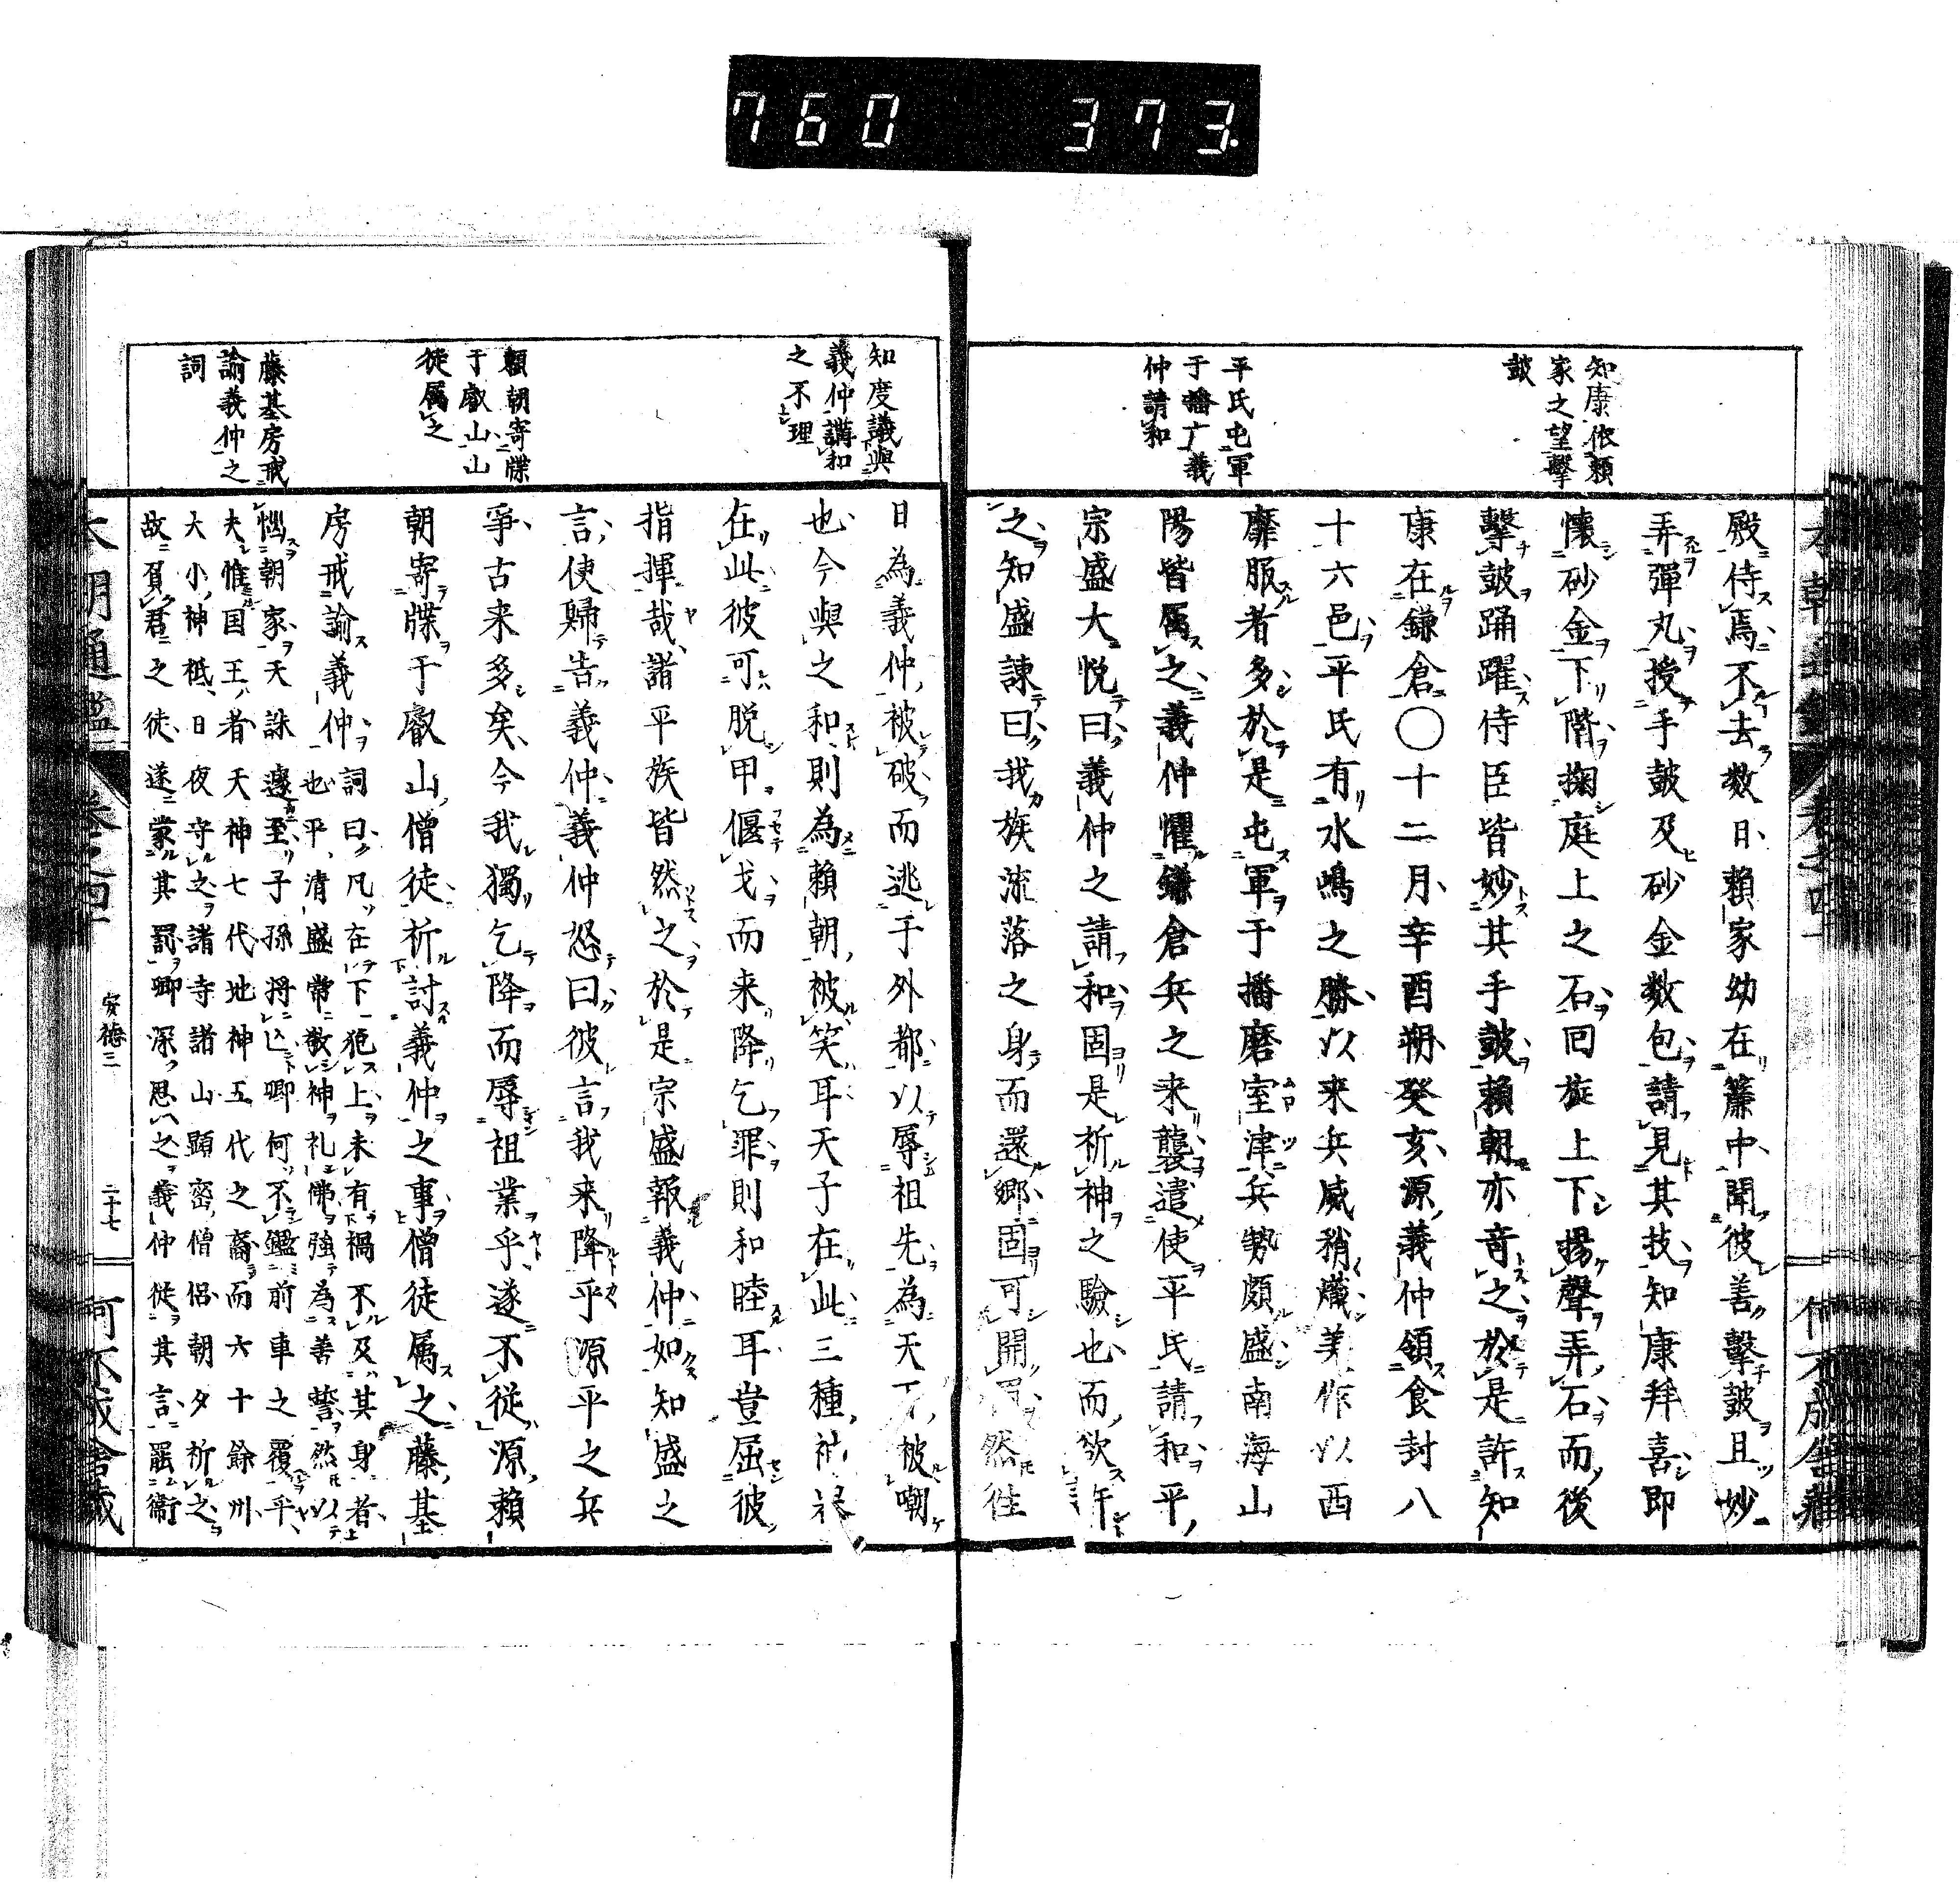 760 373
知康依頼
家之望撃
鼓
平氏屯軍
于播广義
仲請和
殿侍焉不去数日頼家幼在簾中聞彼善撃鼓且妙
弄彈丸授手鼓及砂金数包請見其技知康拜喜即
懐砂金下階掬庭上之石回旋上下揚聲弄石而後
撃鼓踊躍侍臣皆妙其手鼓頼朝亦竒之於是許知
康在鎌倉〇十二月辛酉朔癸亥源義仲領食封八
十六邑平氏有水嶋之勝以来兵威稍熾美作以西
靡服者多於是屯軍于播磨室津兵勢頗盛南海山
陽皆属之義仲懼鎌倉兵之来襲遣使平氏請和平
宗盛大悦曰義仲之請和固是祈神之驗也而欲許
之知盛諫曰我族流落之身而還郷固可開然徃
知度議與
義仲講和
之不理
頼朝寄牒
于叡山山
徒属之
藤基房戒
諭義仲之
詞
日為義仲被破而逃于外都以辱祖先為天下被嘲
也今與之和則為頼朝被笑耳天子在此三種神器
在此彼可脱甲偃戈而来降乞罪則和睦耳豈屈彼
指揮哉諸平族皆然之於是宗盛報義仲如知盛之
言使歸告義仲義仲怒曰彼言我来降乎源平之兵
爭古来多矣今我獨乞降而辱祖業乎遂不從源頼
朝寄牒于叡山僧徒祈討義仲之事僧徒属之藤基
房戒諭義仲詞曰凡在下犯上未有禍不及其身者
也平清盛常敬神礼佛強為善誓然以
惱朝家天誅遄至子孫将亡卿何不鑑前車之覆乎
夫惟国王者天神七代地神五代之裔而六十餘州
大小神祗日夜守之諸寺諸山顯密僧侶朝夕祈之
故負君之徒遂蒙其罰卿深思之義仲從其言罷衛
本朝通鑑
巻之四
安德三
二十七